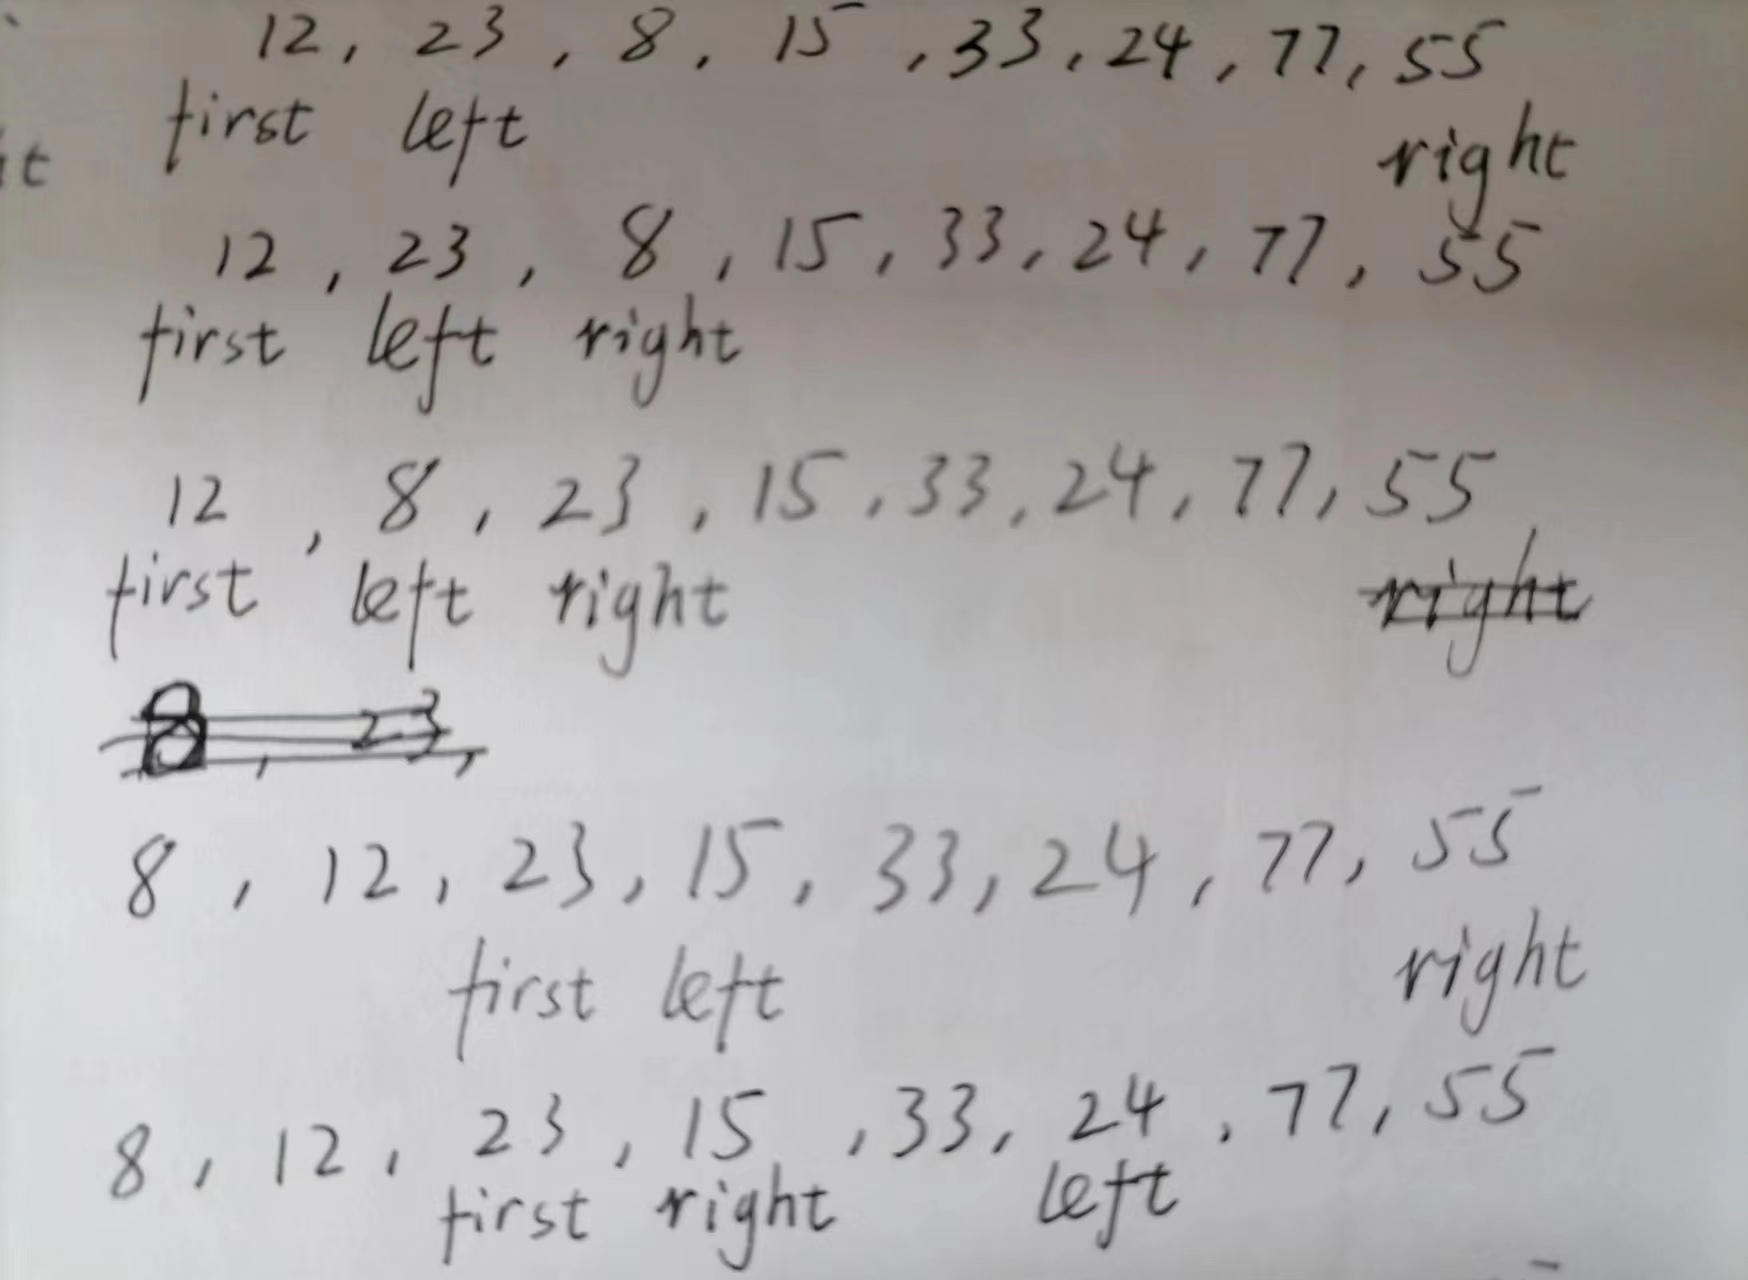 12, 23, 8, 15, 33, 24, 77, 55
first left right
12, 23, 8, 15, 33, 24, 77, 55
first left right
12, 8, 23, 15, 33, 24, 77, 55
first left right right
8, 23,
8, 12, 23, 15, 33, 24, 77, 55
first left right
8, 12, 23, 15, 33, 24, 77, 55
first right left